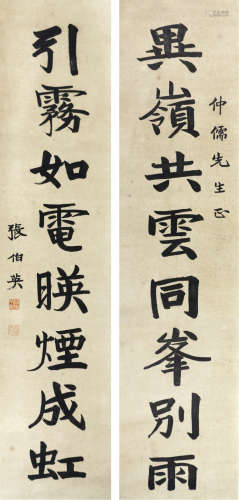 仲儒先生正
異嶺共雲同峯別雨
引霧如電暎煙成虹
張伯英